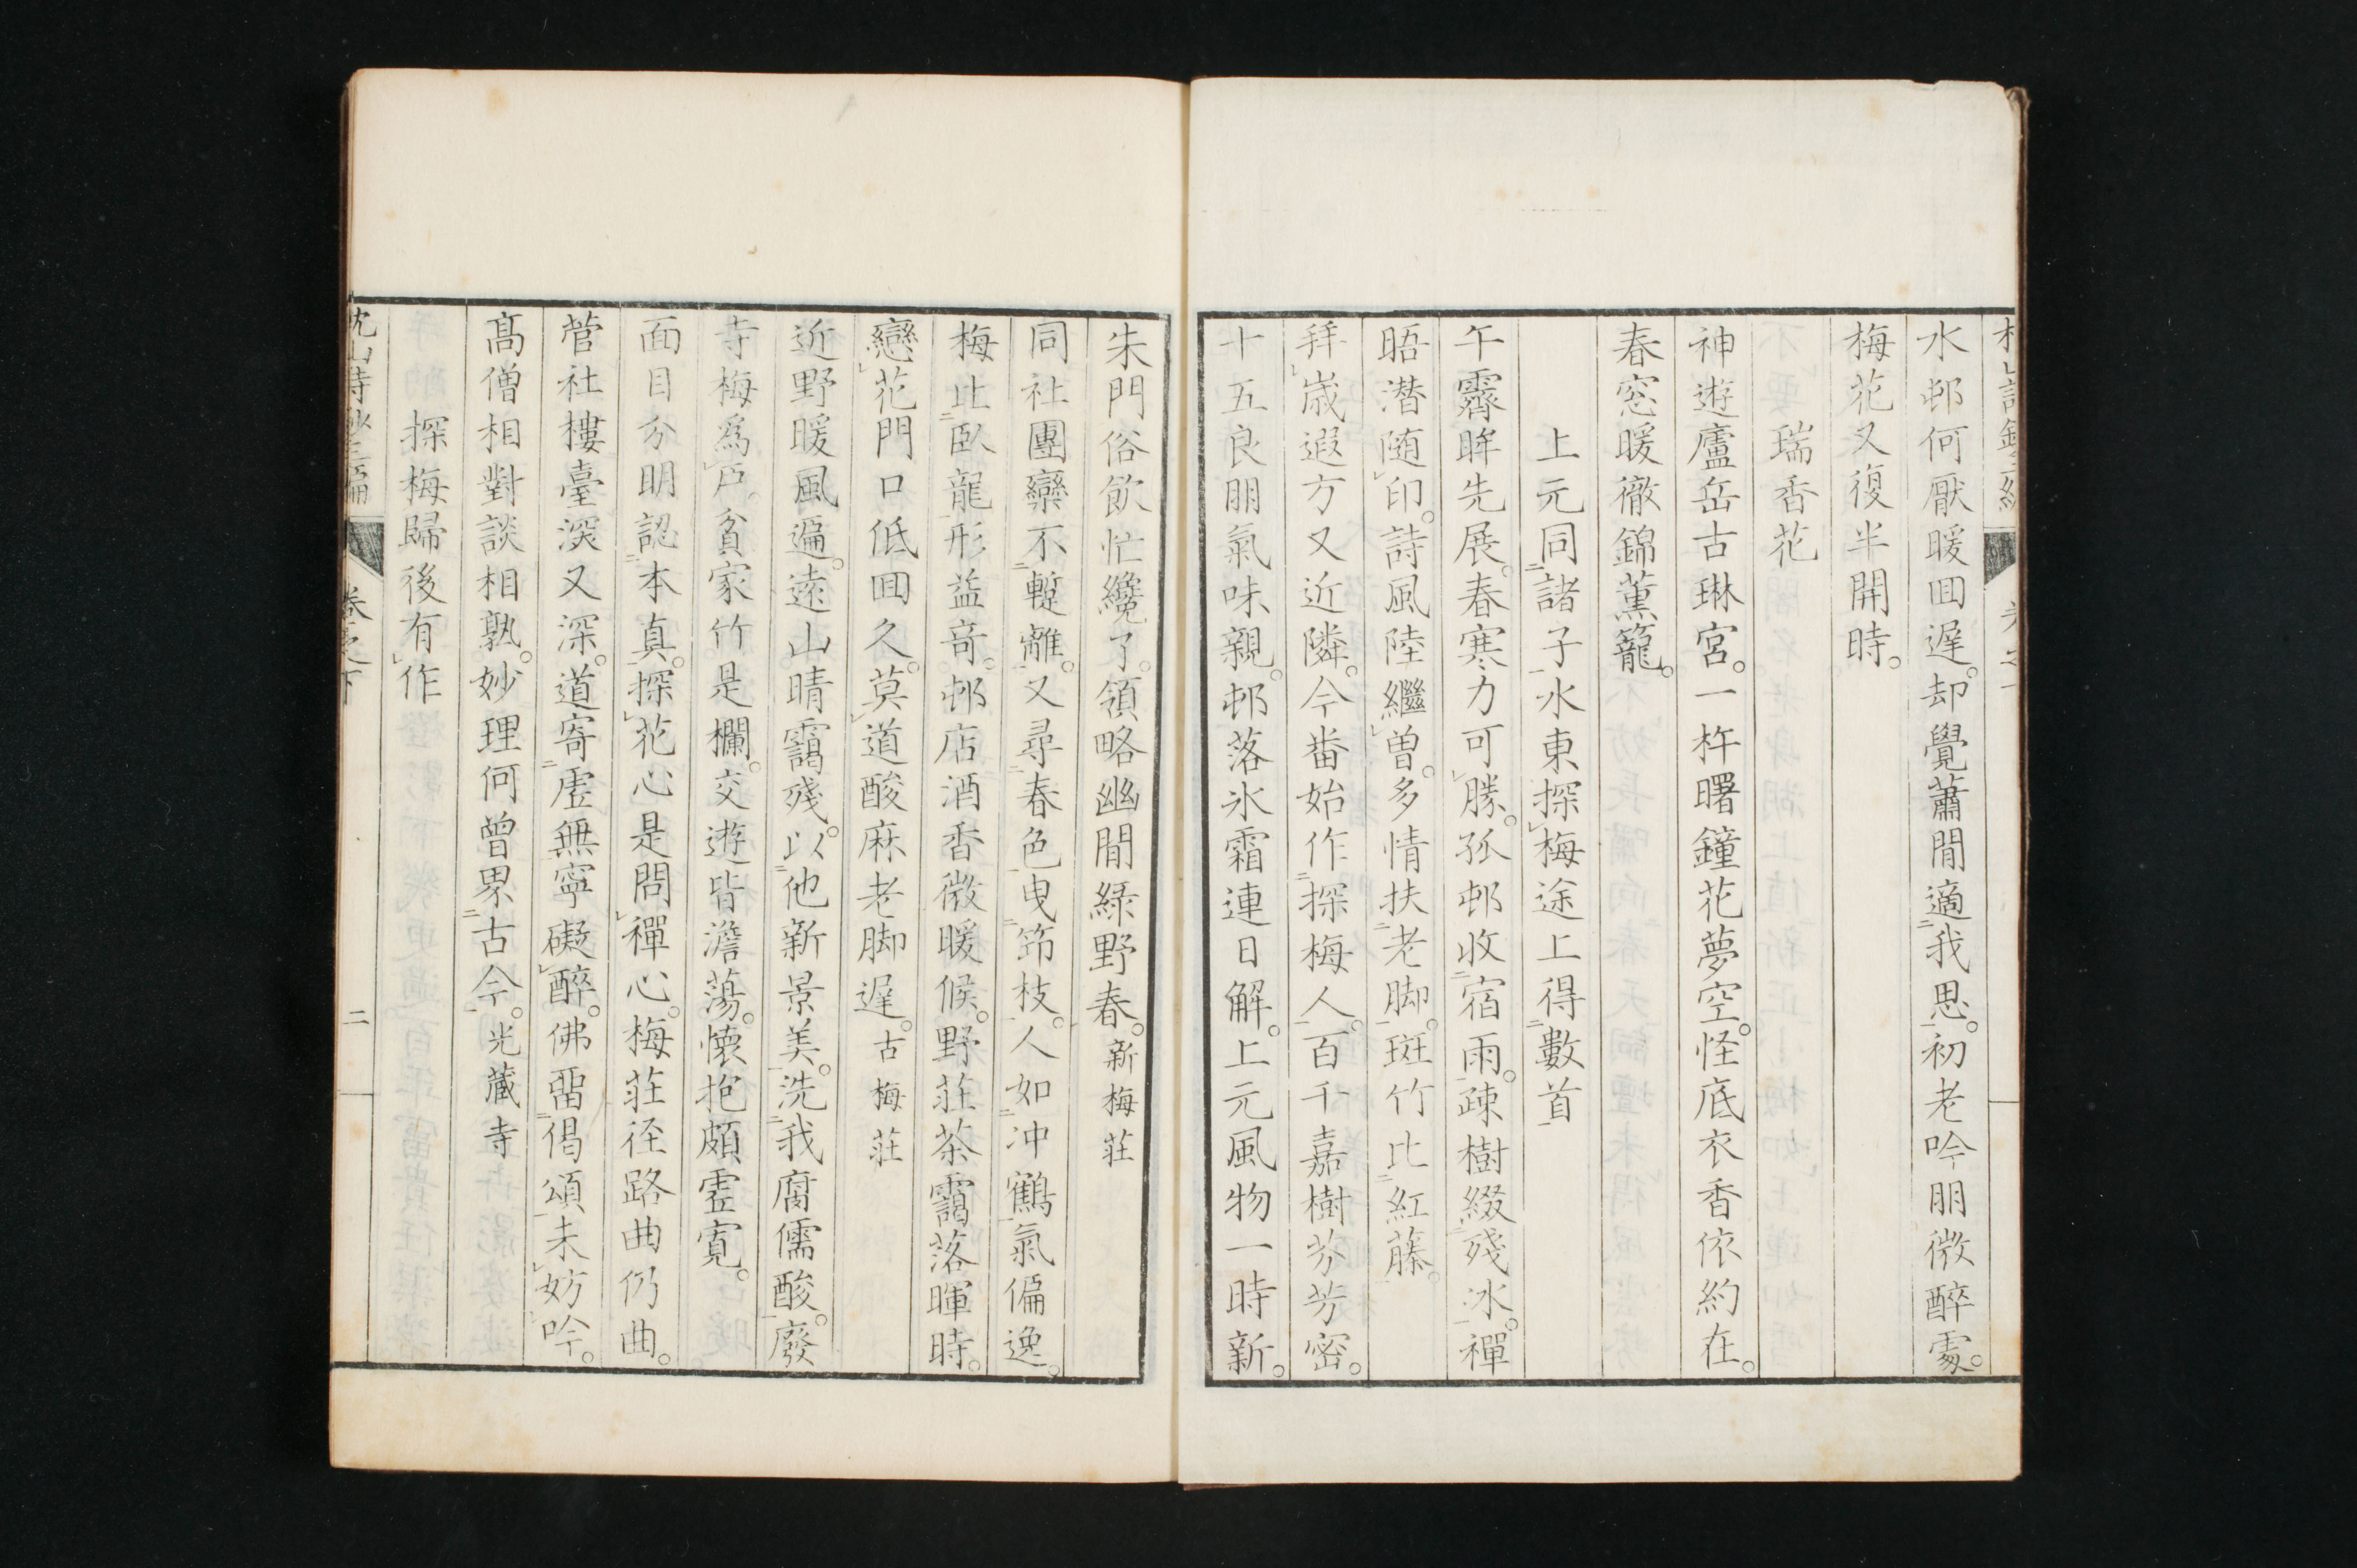 水邨何厭暖回遲。却覺蕭閒適我思。初老吟朋微醉處。
梅花又復半開時。
瑞香花
神遊廬岳古琳宮。一杵曙鐘花夢空。怪底衣香依約在。
春窓暖徹錦薰籠。
上元同諸子水東探梅途上得數首
午霽眸先展。春寒力可勝。孤邨收宿雨。疎樹綴殘冰。禪
晤潜随印。詩風陸繼曽。多情扶老脚。斑竹比紅藤。
拜歲遐方又近隣。今番始作探梅人。百千嘉樹芬芳密。
十五良朋氣味親。邨落氷霜連日解。上元風物一時新。
朱門俗飲忙纔了。領略幽閒綠野春。新梅莊
同社團欒不蹔離。又尋春色曳笻枝。人如冲鶴氣偏逸。
梅比臥龍形益奇。邨店酒香微暖候。野莊茶靄落暉時。
戀花門口低回久。莫道酸麻老脚遲。古梅莊
近野暖風遍。遠山晴靄殘。以他新景美。洗我腐儒酸。廢
寺梅爲戶。貧家竹是欄。交遊皆澹蕩。懷抱頗虛寬。
面目分明認本真。探花心是問禪心。梅莊徑路曲仍曲。
菅社樓臺深又深。道寄虛無寧礙醉。佛畱偈頌未妨吟。
髙僧相對談相熟。妙理何曾界古今。光藏寺
探梅歸後有作
枕山詩鈔三編
卷之下
二